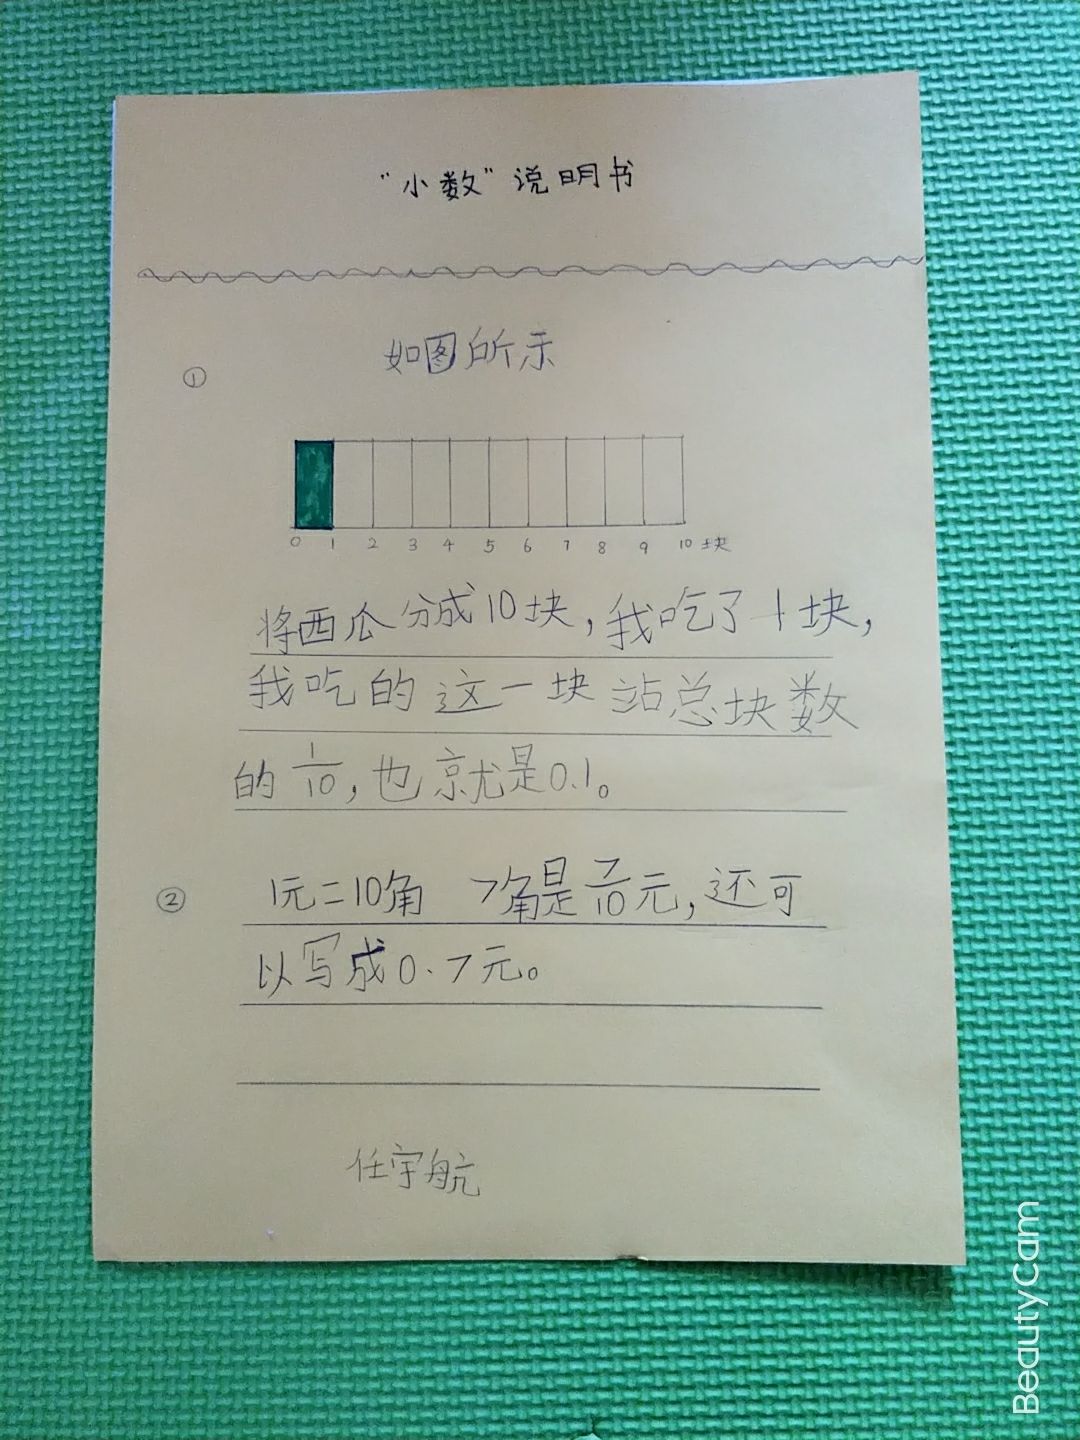 “小数”说明书
① 如图所示
0 1 2 3 4 5 6 7 8 9 10 块
将西瓜分成10块，我吃了1块，
我吃的这一块站总块数
的1/10，也就是0.1。
② 1元=10角 7角是7/10元，还可
以写成0.7元。
任宇航
BeautyCam